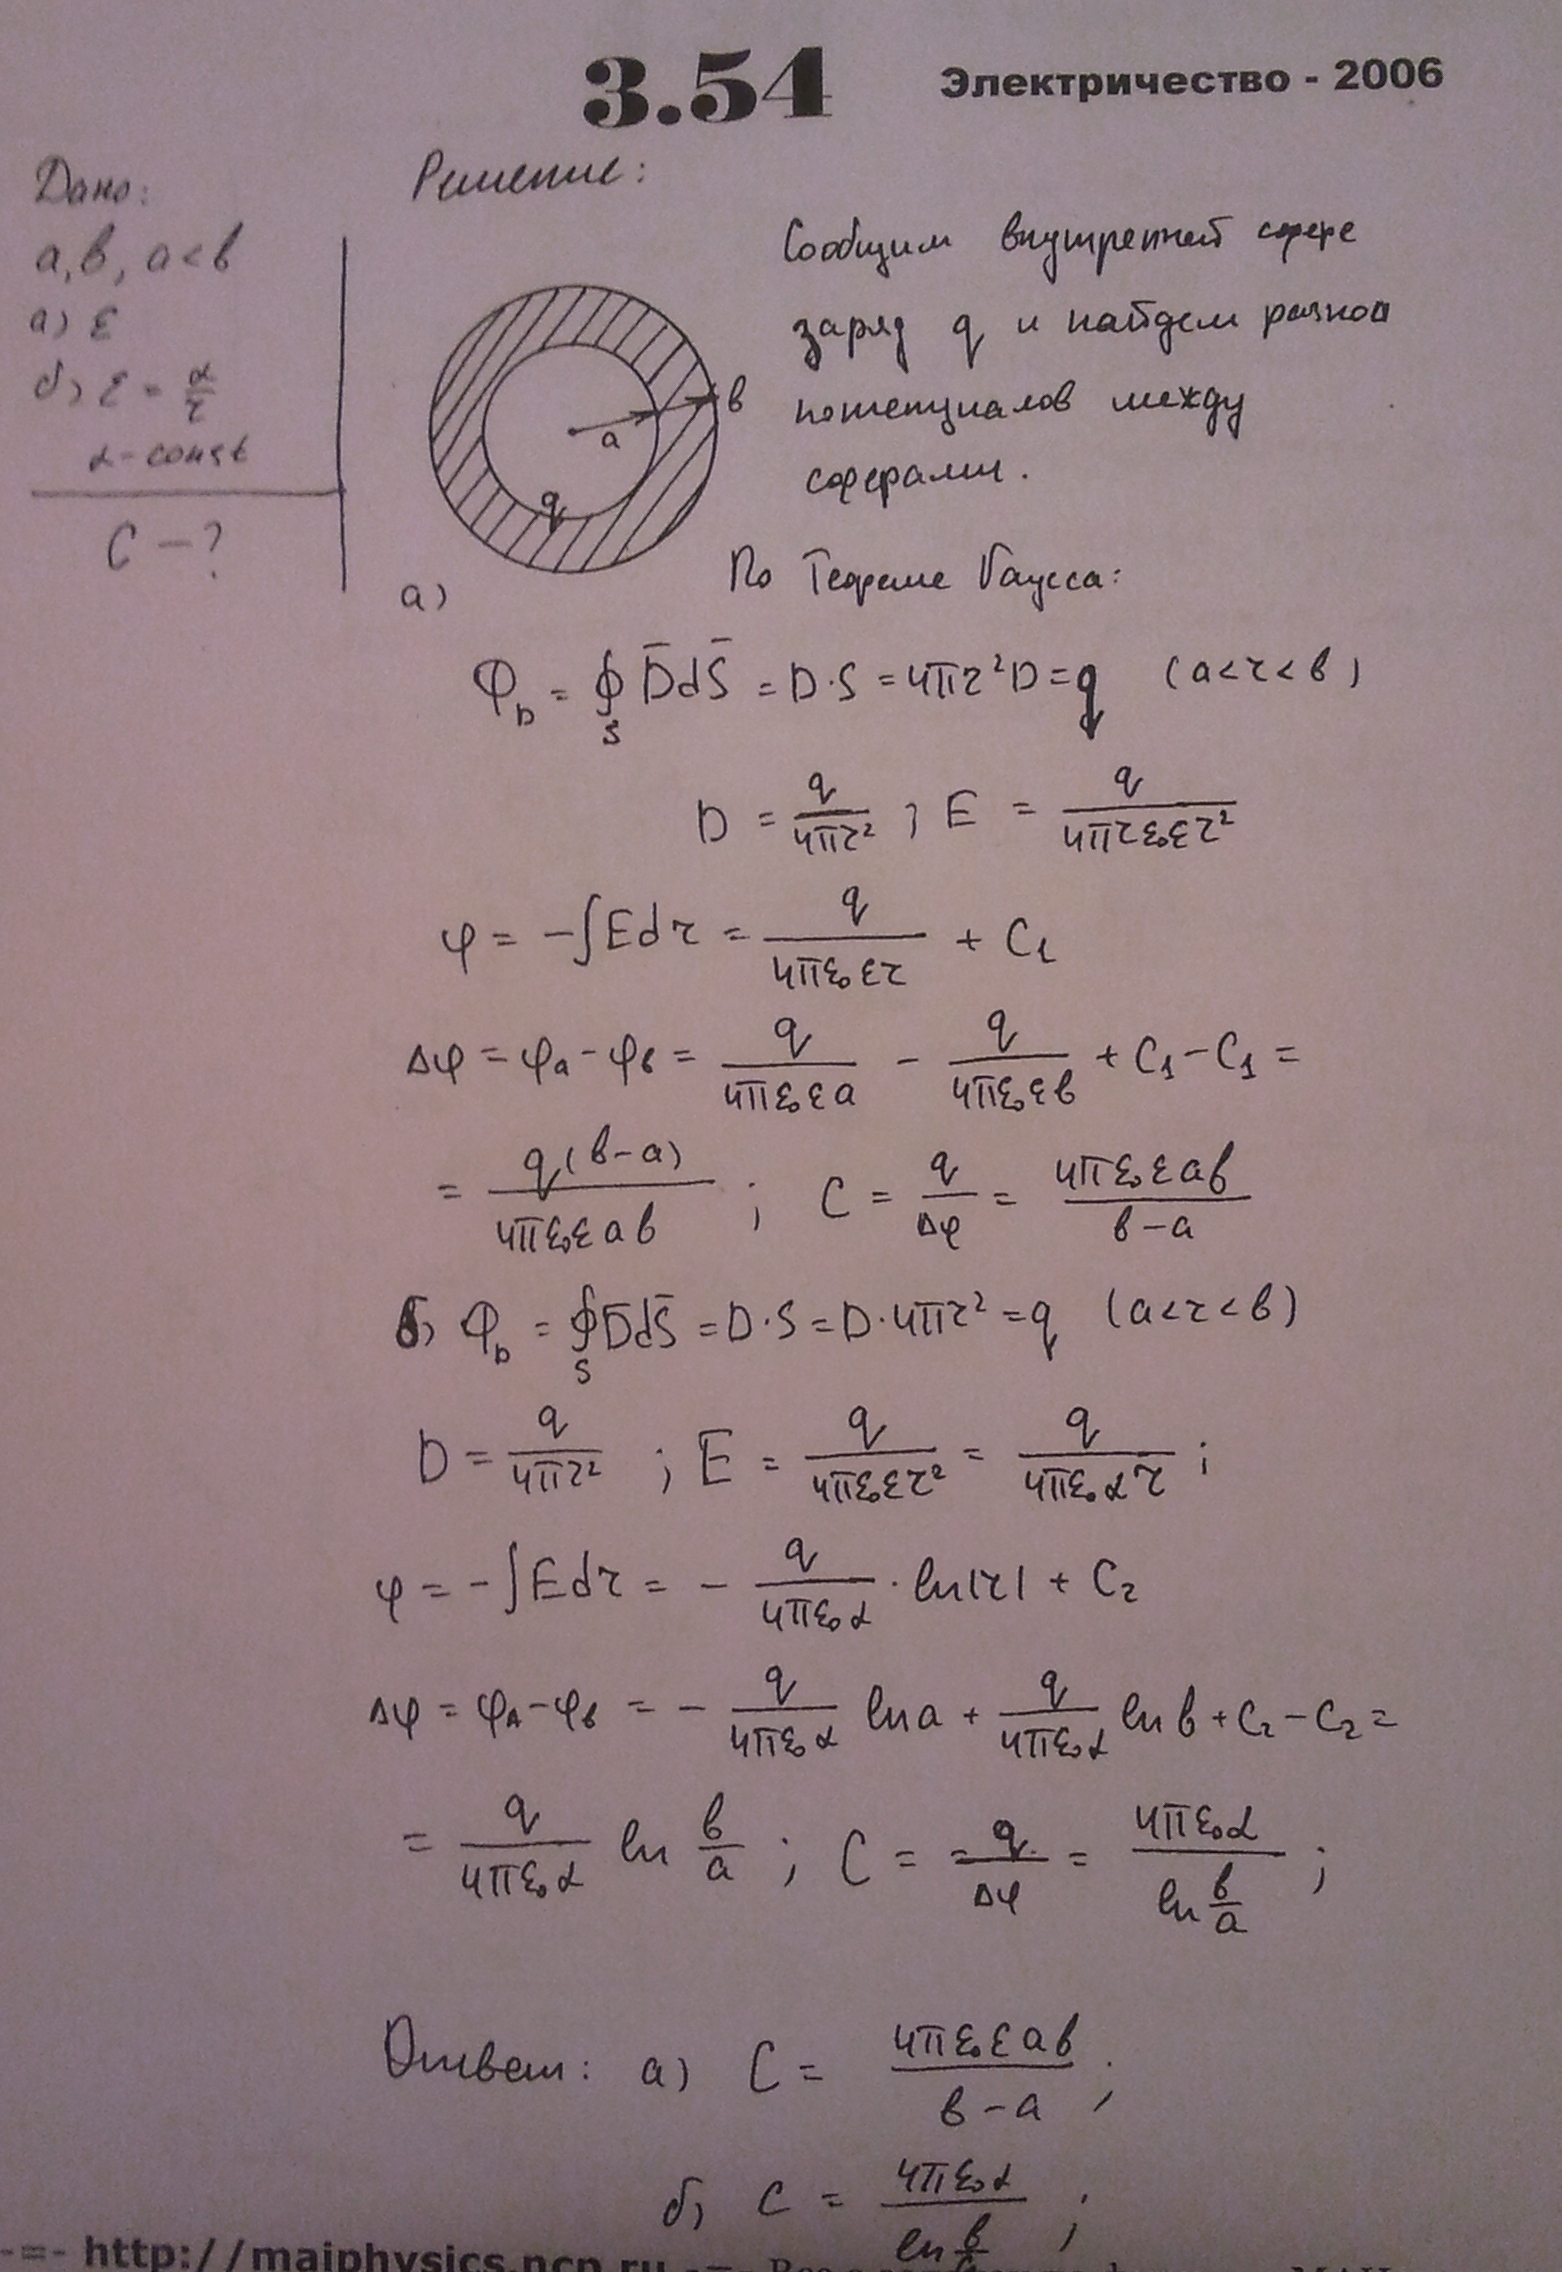 3.54 Электричество - 2006
Дано:
a, b, a<b
а) ε
б) ε = α/r
α - const
C - ?
Решение:
Сообщим внутренней сфере
заряд q и найдем разность
потенциалов между
сферами.
По теореме Гаусса:
a
b
q
а)
Φ_D = ∮_S D̄dS̄ = D·S = 4πr²D = q (a<r<b)
D = q/(4πr²) ; E = q/(4πrε₀εr²)
φ = -∫Edr = q/(4πε₀εr) + C₁
Δφ = φₐ - φ_b = q/(4πε₀εa) - q/(4πε₀εb) + C₁ - C₁ =
= q(b-a)/(4πε₀εab) ; C = q/Δφ = 4πε₀εab/(b-a)
б) Φ_D = ∮_S D̄dS̄ = D·S = D·4πr² = q (a<r<b)
D = q/(4πr²) ; E = q/(4πε₀εr²) = q/(4πε₀αr) ;
φ = -∫Edr = - q/(4πε₀α) · ln|r| + C₂
Δφ = φₐ - φ_b = - q/(4πε₀α) ln a + q/(4πε₀α) ln b + C₂ - C₂ =
= q/(4πε₀α) ln b/a ; C = q/Δφ = 4πε₀α/(ln b/a) ;
Ответ: а) C = 4πε₀εab/(b-a) ;
б) C = 4πε₀α/(ln b/a) ;
-=- http://maiphysics.ncp.ru